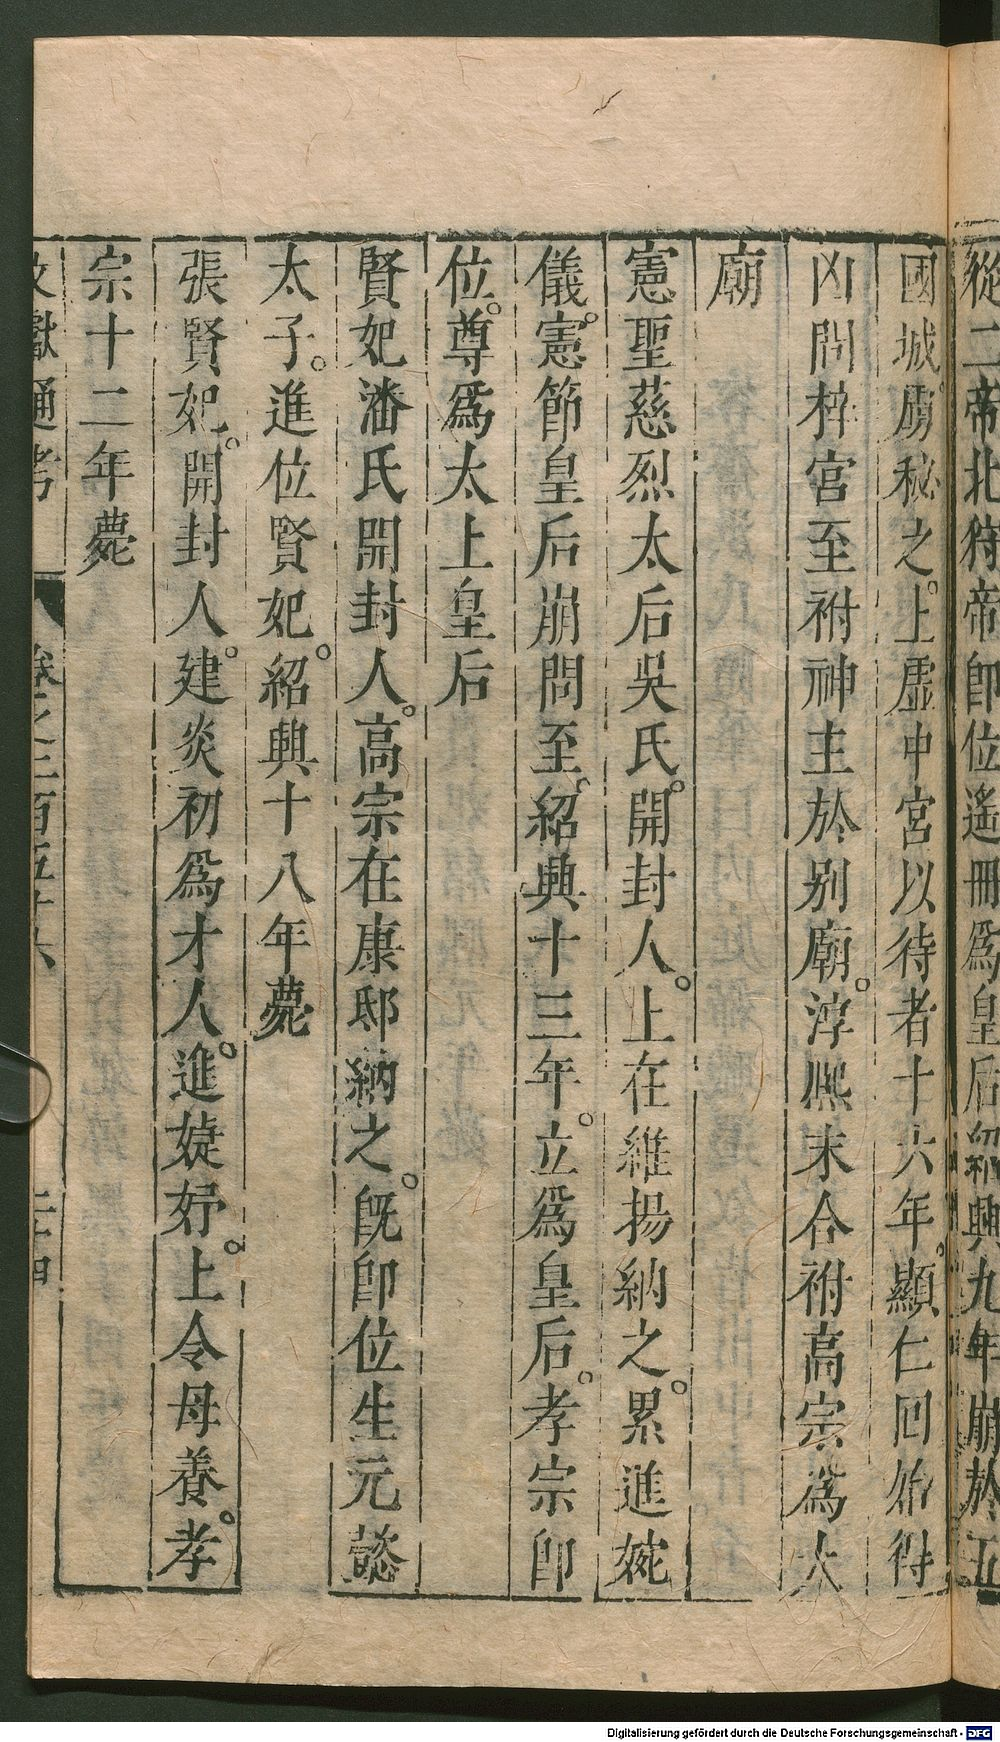 從二帝北狩帝卽位遙冊爲皇后紹興九年崩於五
國城。虜秘之。上虛中宮以待者十六年。顯仁回始得
凶問梓宮至祔神主於别廟。淳熈末合祔高宗爲大
廟
憲聖慈烈太后吳氏。開封人。上在維揚納之。累進婉
儀。憲節皇后崩問至。紹興十三年。立爲皇后。孝宗卽
位。尊爲太上皇后
賢妃潘氏開封人。高宗在康邸納之。旣卽位生元懿
太子。進位賢妃。紹興十八年薨
張賢妃。開封人。建炎初爲才人。進婕妤。上令母養。孝
宗十二年薨
文獻通考 卷之三百五十六 二十四
Digitalisierung gefördert durch die Deutsche Forschungsgemeinschaft - DFG